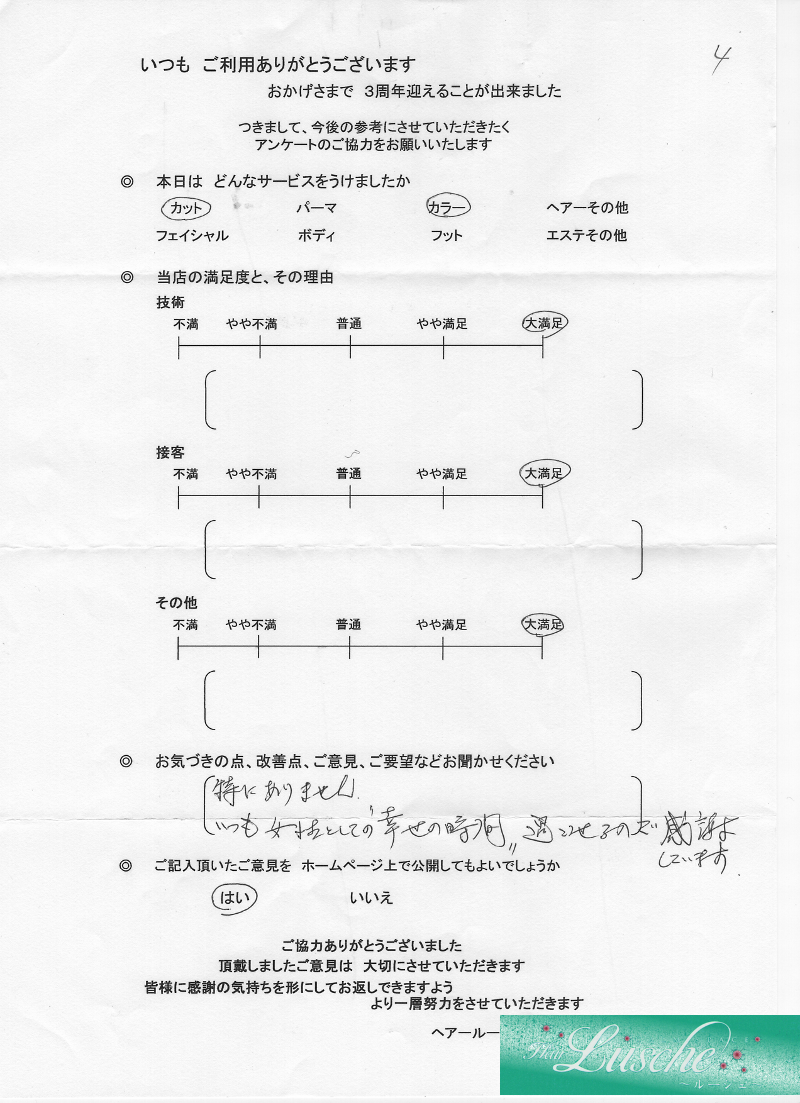 4
いつも ご利用ありがとうございます
おかげさまで 3周年迎えることが出来ました
つきまして、今後の参考にさせていただきたく
アンケートのご協力をお願いいたします
◎ 本日は どんなサービスをうけましたか
カット パーマ カラー ヘアーその他
フェイシャル ボディ フット エステその他
◎ 当店の満足度と、その理由
技術
不満 やや不満 普通 やや満足 大満足
接客
不満 やや不満 普通 やや満足 大満足
その他
不満 やや不満 普通 やや満足 大満足
◎ お気づきの点、改善点、ご意見、ご要望などお聞かせください
特にありません
いつも 女性としての〝幸せの時間〟過ごせるので 感謝
しています
◎ ご記入頂いたご意見を ホームページ上で公開してもよいでしょうか
はい いいえ
ご協力ありがとうございました
頂戴しましたご意見は 大切にさせていただきます
皆様に感謝の気持ちを形にしてお返しできますよう
より一層努力をさせていただきます
ヘアールー
Hair Lusche
ヘアールーシェ